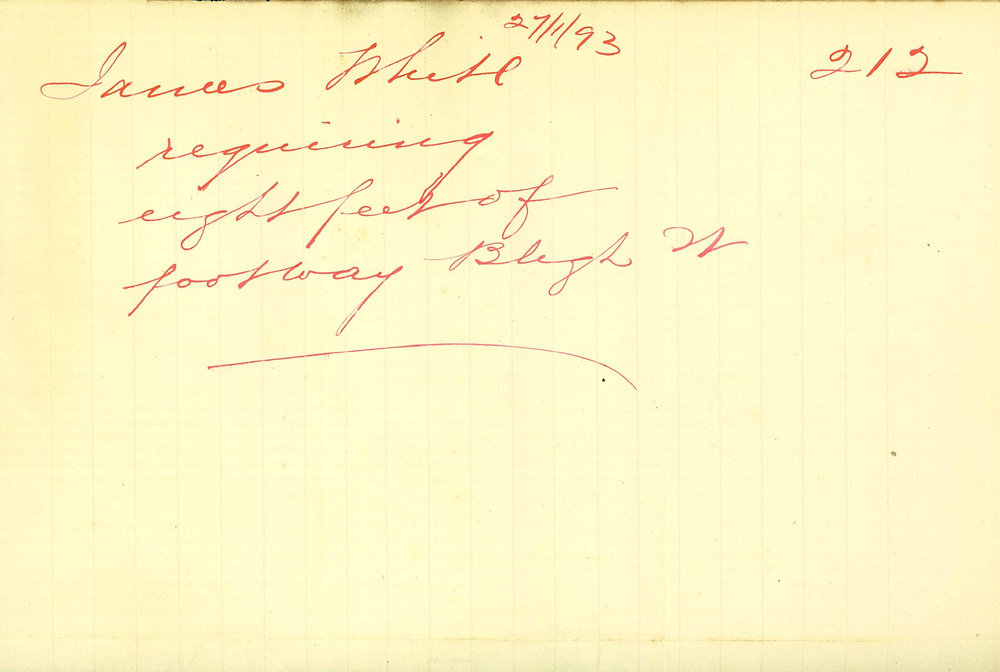 27/1/93
James White 212
requiring
eight feet of
footway Bligh St